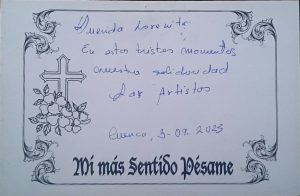 Querida Lorenita
En estos tristes momentos
nuestra solidaridad
Las Artistas
Cuenca, 3-09-2025
Mi más Sentido Pésame